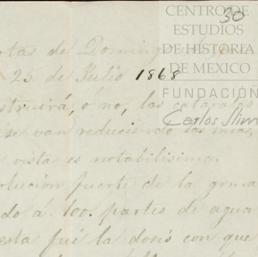 CENTRO DE
ESTUDIOS
DE HISTORIA
DE MEXICO
FUNDACIÓN
Carlos Slim
30
otas de Doming
25 de Julio 1868
struirá, ó no, las cataratas
se van reduciendo las mias,
vista es notabilisima.
olucion fuerte de la goma
do á 100 partes de agua
esta fué la dosis con que